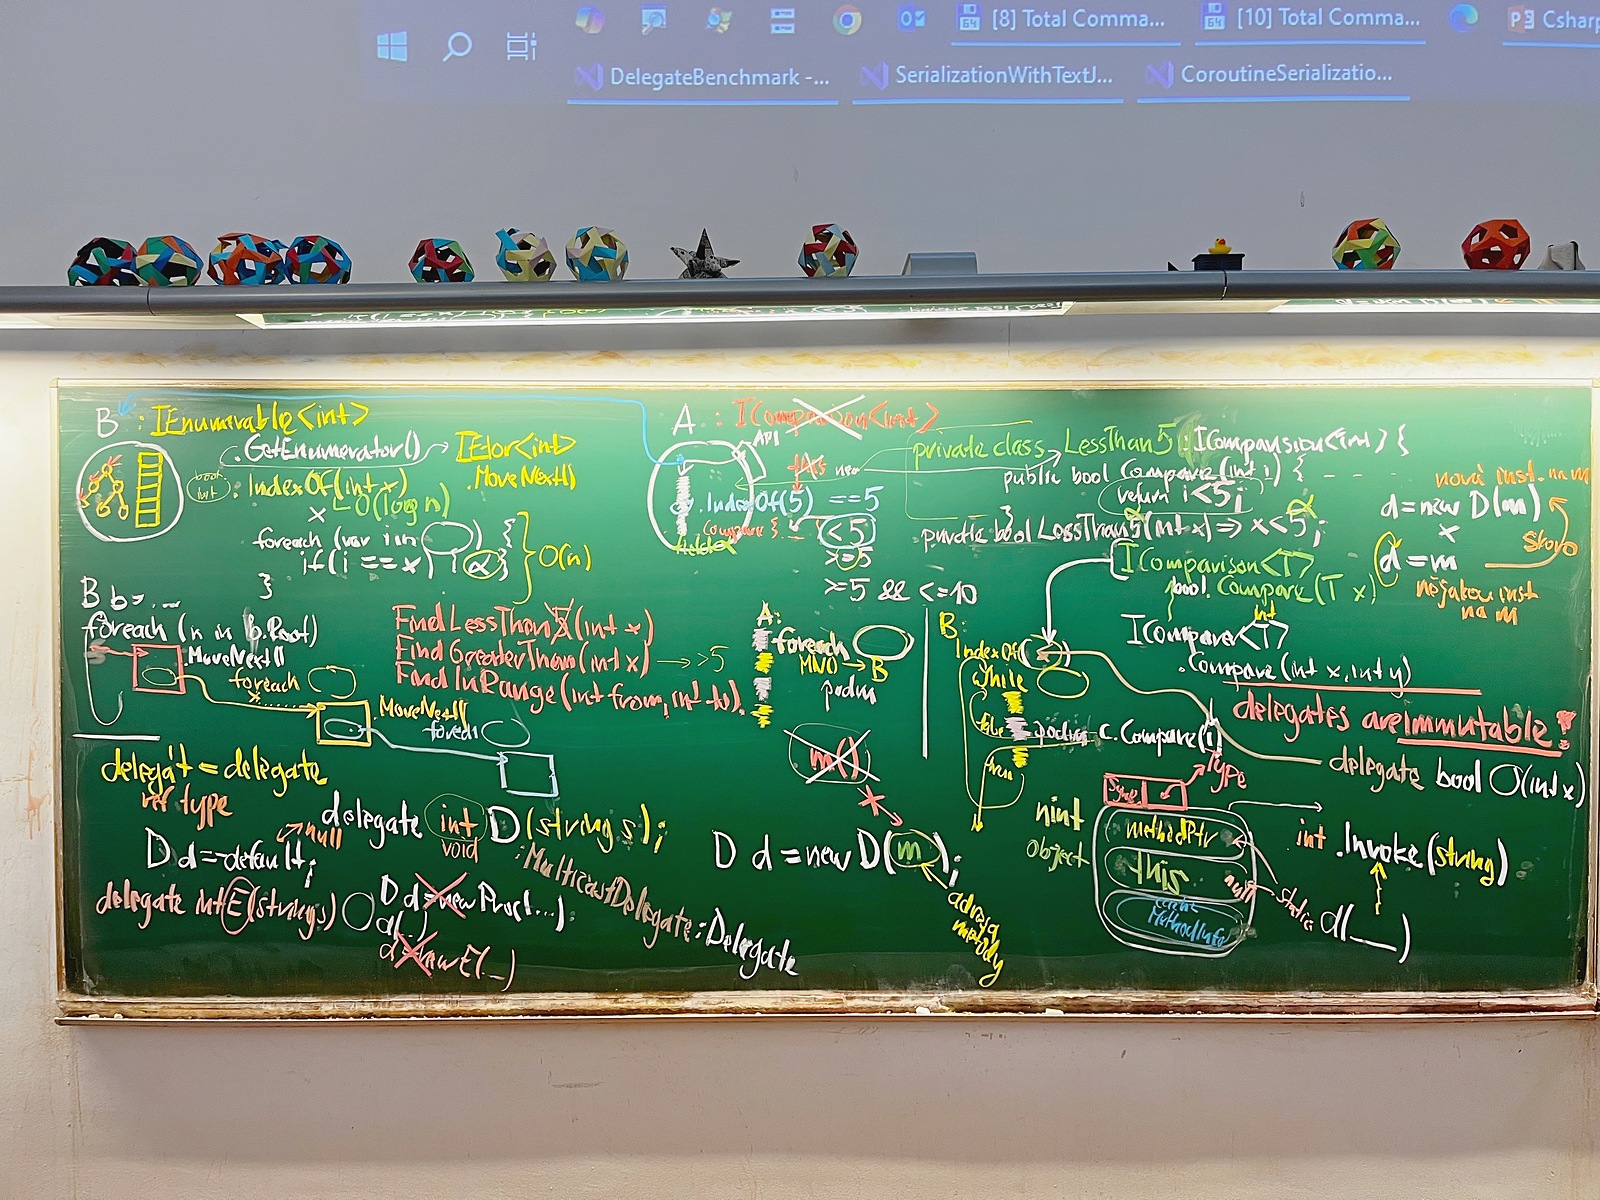 [8] Total Comma...
[10] Total Comma...
Csharp
DelegateBenchmark -...
SerializationWithTextJ...
CoroutineSerializatio...
B : IEnumerable<int>
.GetEnumerator() → IEtor<int>
.MoveNext()
bool
int
: IndexOf(int x)
O(log n)
foreach (var i in
{
if(i == x)
}
O(n)
B b = ...
foreach (n in b.Root)
.MoveNext()
foreach
.MoveNext()
foreach
FindLessThan5(int x)
FindGreaterThan(int x) → >5
FindInRange(int from, int to)
A : IComparison<int>
API
this
new
.IndexOf(5) == 5
Compare {
< 5
>= 5
>= 5 && <= 10
private class LessThan5 : IComparision<int> {
public bool Compare(int i) {
return i < 5;
}
private bool LessThan5(int x) => x < 5;
IComparison<T>
bool Compare(T x)
int
IComparer<T>
.Compare(int x, int y)
nová inst. na m
d = new D(m)
x
d = m
skoro
nějakou inst
na m
A:
foreach
MNO → B
podm
B:
IndexOf(
while
c.Compare(i)
delegates are immutable!
delegate bool O(int x)
delegát = delegate
ref type
delegate int D(string s);
void
D d = default;
null
: MulticastDelegate : Delegate
delegate int E(string s)
D d = new Proct...);
d(..)
d = new E(...)
m()
D d = new D(m);
adresa
metody
nint
object
Type
methodPtr
this
null
static
MethodInfo
int .Invoke(string)
d(__)